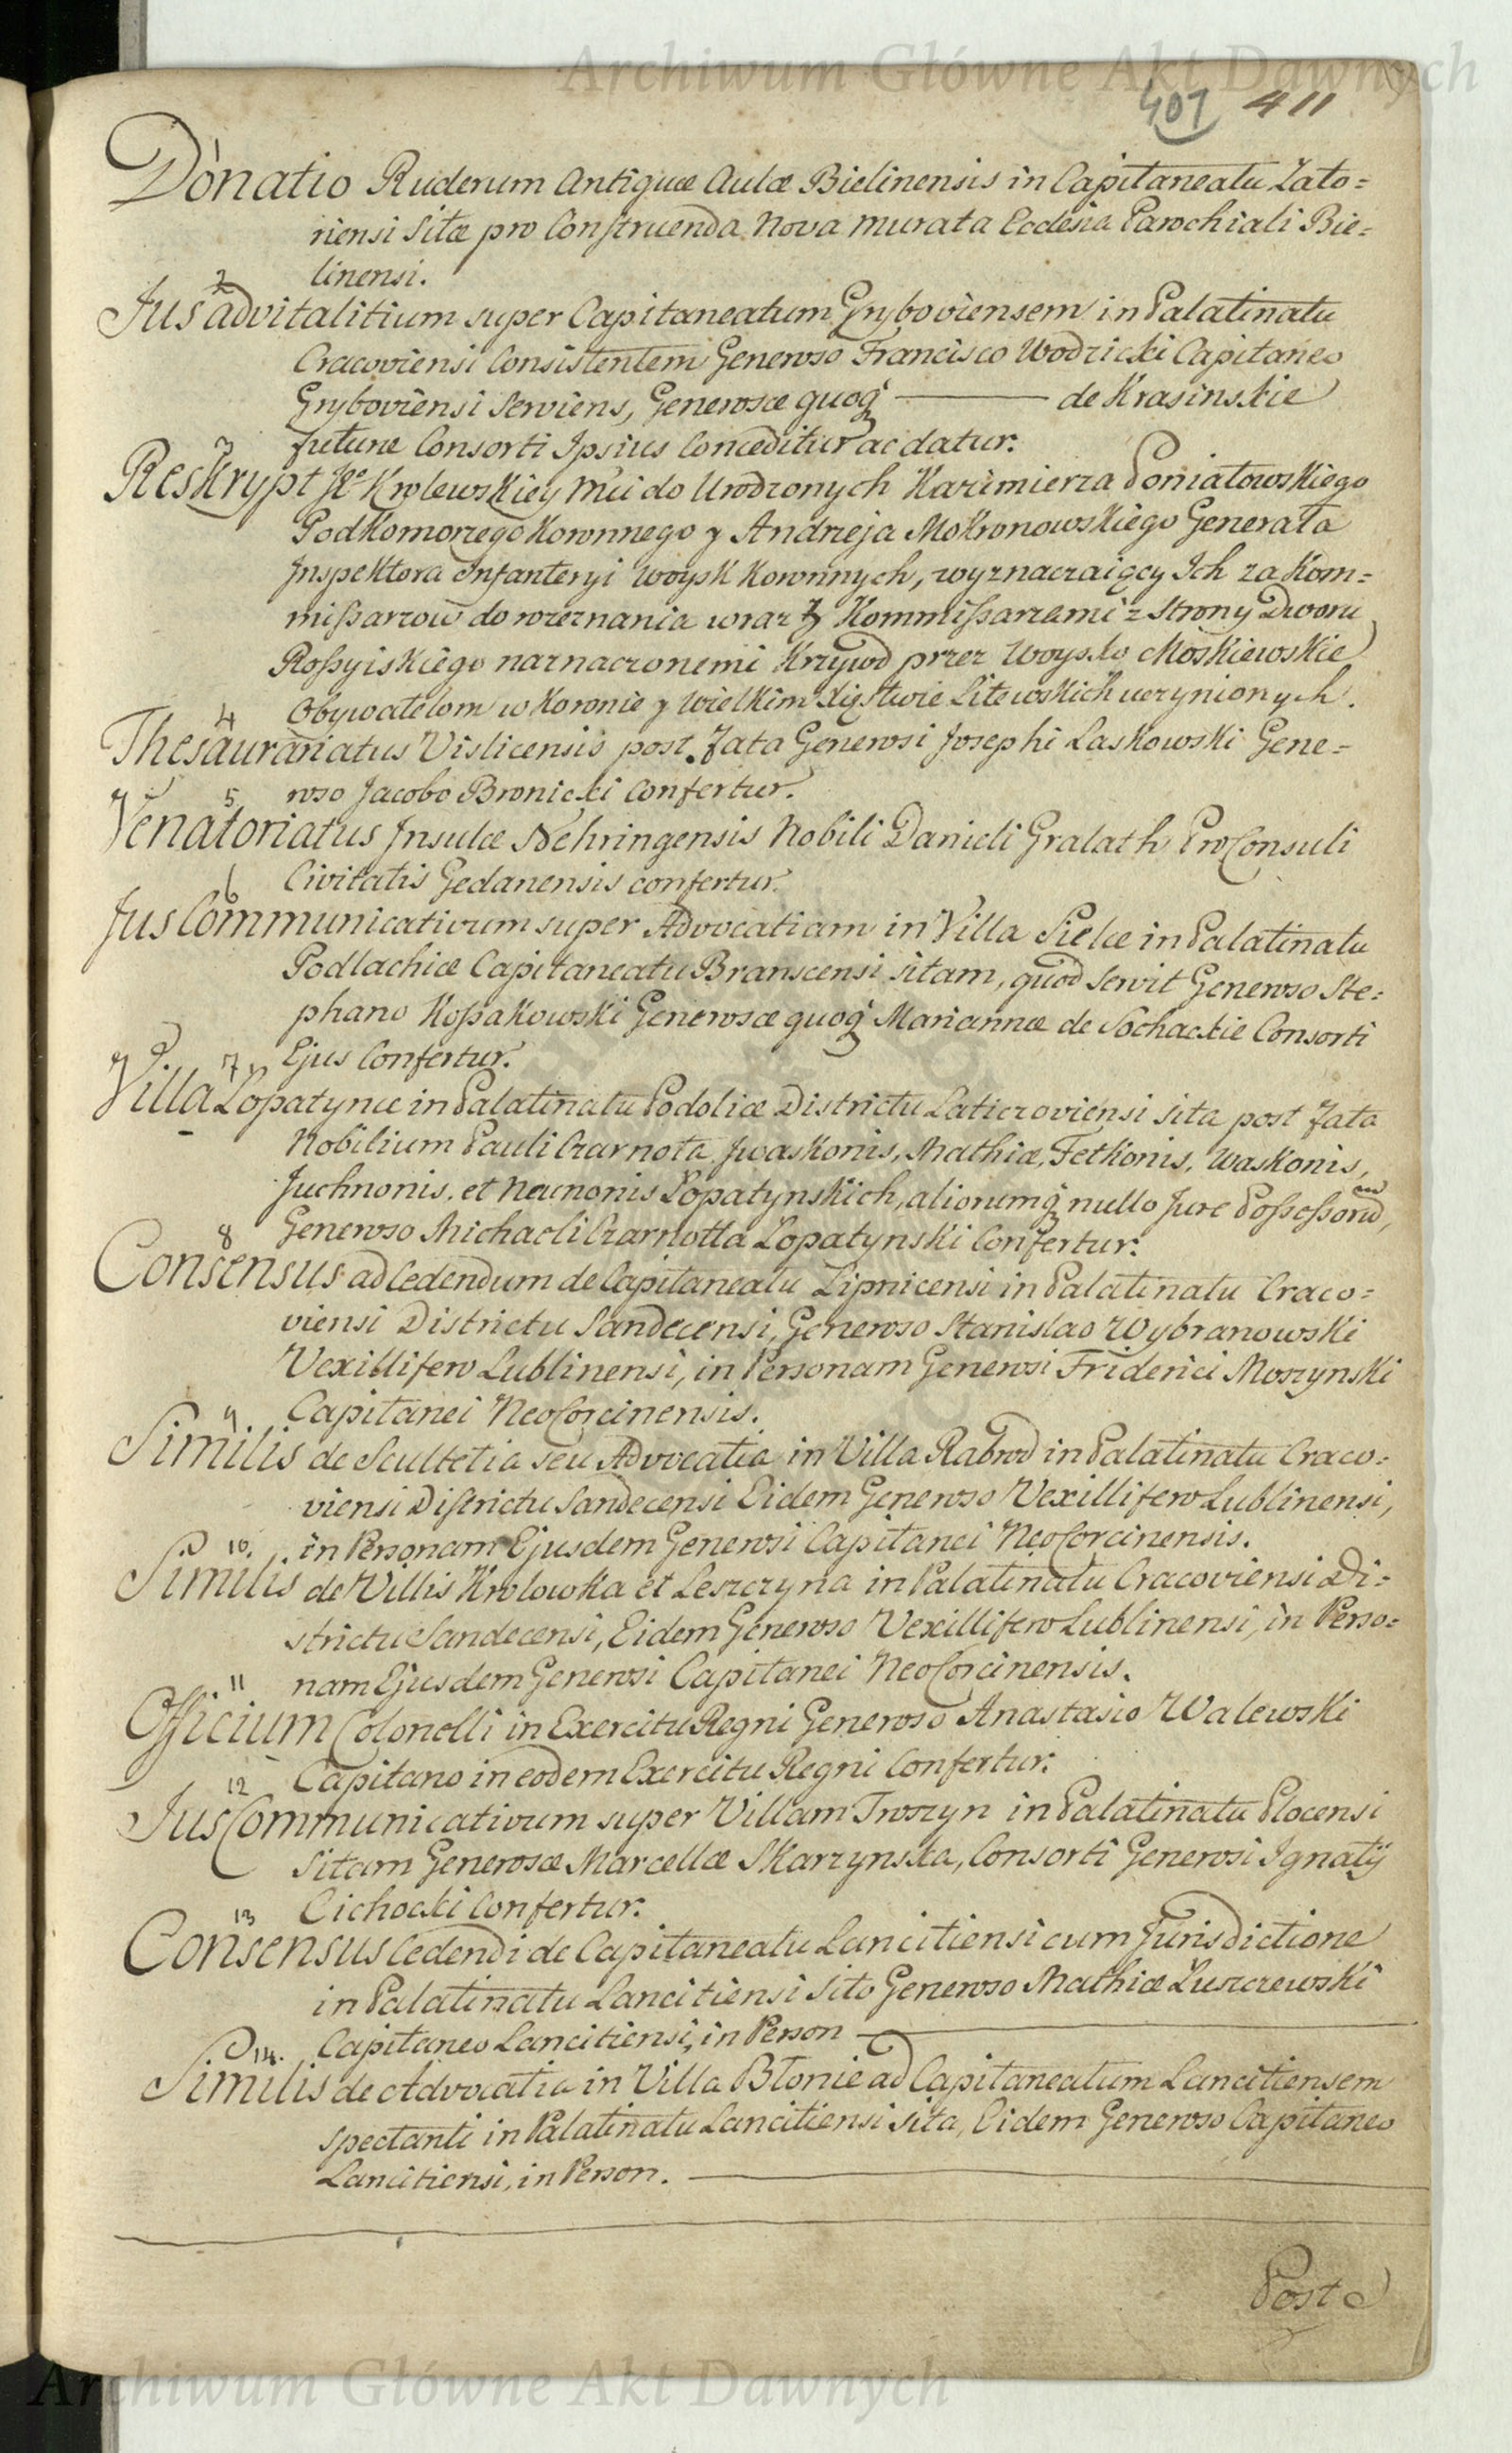 Archiwum Główne Akt Dawnych
407 411
1
Donatio Ruderum Antiquæ Aulæ Bielinensis in Capitaneatu Zato=
riensi Sitæ pro Construenda Nova murata Ecclesia Parochiali Bie=
linensi.
2
Jus advitalitium super Capitaneatum Gryboviensem in Palatinatu
Cracoviensi Consistentem Generoso Francisco Wodzicki Capitaneo
Gryboviensi Serviens, Generosæ quoq ——— de Krasinskie
futuræ Consorti Ipsius Conceditur ac datur.
3
Reskrypt Je° Krolewskiey Mći do Urodzonych Kazimierza Poniatowskiego
Podkomorzego Koronnego y Andrzeja Mokronowskiego Generała
Inspektora Infanteryi Woysk Koronnych, wyznaczaiący Ich za Kom=
mißarzow do rozeznania wraz z Kommißarzami z Strony Dworu
Roßyiskiego naznaczonemi Krzywd przez Woysko Moskiewskie
Obywatelom w Koronie y Wielkim Xięstwie Litewskich uczynionych.
4
Thesaurariatus Vislicensis post Fata Generosi Josephi Laskowski Gene=
roso Jacobo Bronicki Confertur.
5
Venatoriatus Insulæ Nehringensis Nobili Danieli Gralath ProConsuli
Civitatis Gedanensis confertur.
6
Jus Communicativum super Advocatiam in Villa Pielce in Palatinatu
Podlachiæ Capitaneatu Branscensi sitam, quod Servit Generoso Ste=
phano Koßakowski Generosæ quoq Mariannæ de Sochackie Consorti
Ejus Confertur.
7
Villa Lopatynce in Palatinatu Podoliæ Districtu Laticzoviensi sita post Fata
Nobilium Pauli Czarnota, Iwaskonis, Mathiæ, Fetkonis, Waskonis,
Juchnonis, et Neunonis Lopatynskich, aliorumq nullo Jure Poßeßorum,
Generoso Michaeli Czarnotta Lopatynski Confertur.
8
Consensus ad Cedendum de Capitaneatu Lipnicensi in Palatinatu Craco=
viensi Districtu Sandecensi, Generoso Stanislao Wybranowski
Vexillifero Lublinensi, in Personam Generosi Friderici Moszynski
Capitanei NeoCorcinensis.
9.
Similis de Scultetia seu Advocatia in Villa Rabrod in Palatinatu Craco=
viensi Districtu Sandecensi Eidem Generoso Vexillifero Lublinensi,
in Personam Ejusdem Generosi Capitanei NeoCorcinensis.
10.
Similis de Villis Krolowka et Leszczyna in Palatinatu Cracoviensi Di=
strictu Sandecensi, Eidem Generoso Vexillifero Lublinensi, in Perso=
nam Ejusdem Generosi Capitanei NeoCorcinensis.
11
Officium Colonelli in Exercitu Regni Generoso Anastasio Walewski
Capitano in eodem Exercitu Regni Confertur.
12
Jus Communicativum super Villam Troszyn in Palatinatu Plocensi
Sitam Generosæ Marcellæ Skarzynska, Consorti Generosi Ignatÿ
Cichocki Confertur.
13
Consensus Cedendi de Capitaneatu Lancitiensi cum Jurisdictione
in Palatinatu Lancitiensi Sito Generoso Mathiæ Luszczewski
Capitaneo Lancitiensi, in Person ———
14.
Similis de Advocatia in Villa Błonie ad Capitaneatum Lancitiensem
spectanti in Palatinatu Lancitiensi sita, Eidem Generoso Capitaneo
Lancitiensi, in Person. ———
Post
Archiwum Główne Akt Dawnych